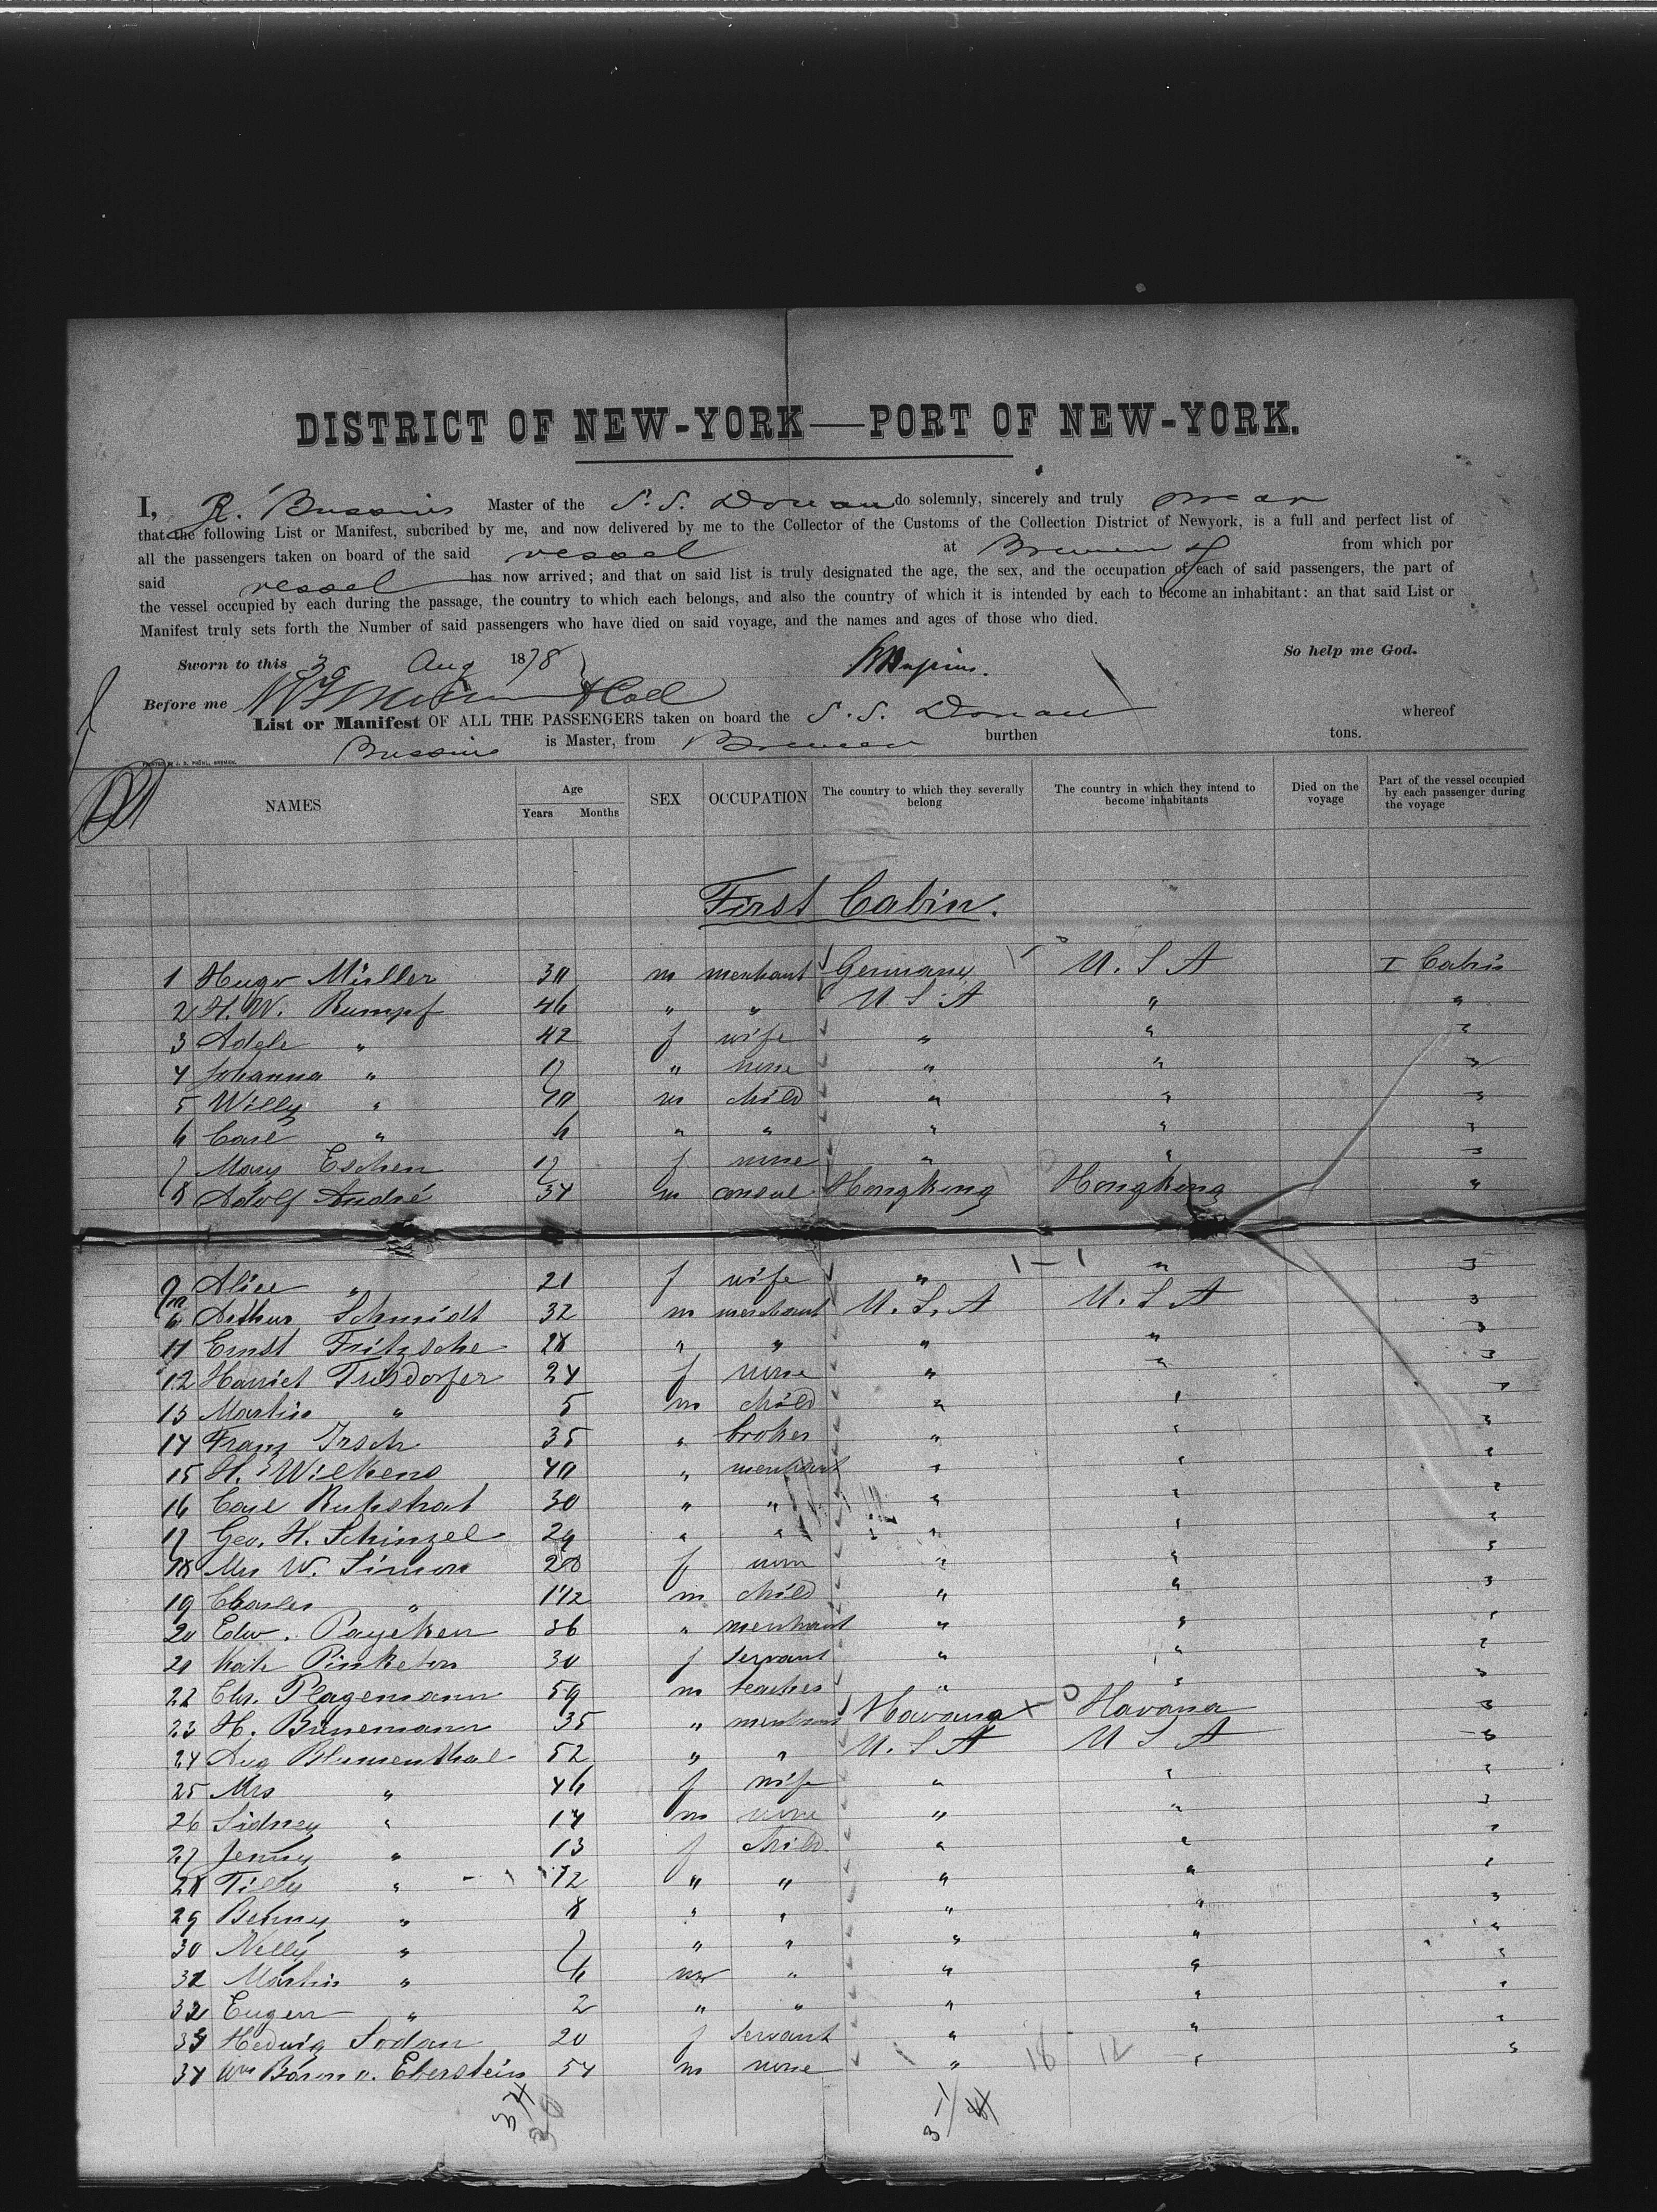 DISTRICT OF NEW-YORK—PORT OF NEW-YORK.
I, R. Bussius Master of the S. S. Donau do solemnly, sincerely and truly swear
that the following List or Manifest, subcribed by me, and now delivered by me to the Collector of the Customs of the Collection District of Newyork, is a full and perfect list of
all the passengers taken on board of the said vessel at Bremen from which por
said vessel has now arrived; and that on said list is truly designated the age, the sex, and the occupation of each of said passengers, the part of
the vessel occupied by each during the passage, the country to which each belongs, and also the country of which it is intended by each to become an inhabitant: an that said List or
Manifest truly sets forth the Number of said passengers who have died on said voyage, and the names and ages of those who died.
Sworn to this 3 Aug 1878 So help me God.
Before me Coll
List or Manifest OF ALL THE PASSENGERS taken on board the S. S. Donau whereof
Bussius is Master, from Bremen burthen tons.
PRINTED BY J. D. PRÖHL, BREMEN.
NAMES Age Years Months SEX OCCUPATION The country to which they severally belong The country in which they intend to become inhabitants Died on the voyage Part of the vessel occupied by each passenger during the voyage
First Cabin.
1 Hugo Müller 30 m merchant Germany U. S A I Cabin
2 H. W. Rumpf 46 " " U S A " "
3 Adele " 42 f wife " " "
4 Johanna " 17 " none " " "
5 Willy " 10 m child " " "
6 Carl " 6 " " " " "
7 Mary Eschen 17 f none " " "
8 Adolf André 34 m consul Hongkong Hongkong "
9 Alice " 21 f wife " " "
10 Arthur Schmidt 32 m merchant U. S. A U. S A "
11 Ernst Fritzsche 28 " " " " "
12 Harriet Trisdorfer 24 f none " " "
13 Martin " 5 m child " " "
14 Franz Irsch 35 " broker " " "
15 H. Wilkens 40 " merchant " " "
16 Carl Ruhstrat 30 " " " " "
17 Geo. H. Schinzel 29 " " " " "
18 Mrs W. Simon 28 f none " " "
19 Charles " 1 1/2 m child " " "
20 Edw. Payeken 36 " merchant " " "
21 Kate Pinketon 30 f servant " " "
22 Chr. Plagemann 59 m teacher " " "
23 H. Bünemann 35 " merchant Havana Havana "
24 Aug Blumenthal 52 " " U. S A U S A "
25 Mrs " 46 f wife " " "
26 Sidney " 14 m none " " "
27 Jenny " 13 f child " " "
28 Tilly " 12 " " " " "
29 Benny " 8 " " " " "
30 Nelly " 7 " " " " "
31 Martin " 6 m " " " "
32 Eugen " 2 " " " " "
33 Hedwig Sodan 20 f servant " " "
34 Wm Baron v. Eberstein 54 m none " 16 12 " "
34
30
31